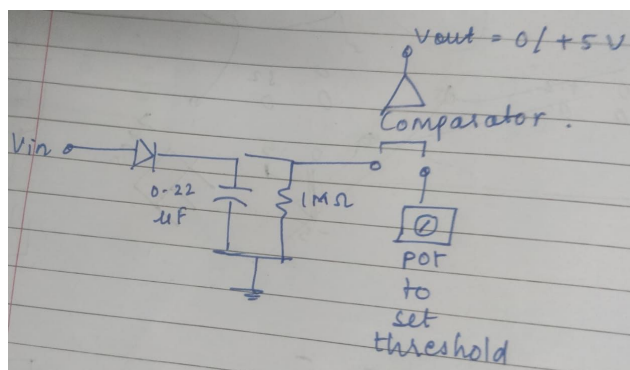 Vout = 0/+5 V
Comparator.
Vin
0.22
µF
1MΩ
pot
to
set
threshold